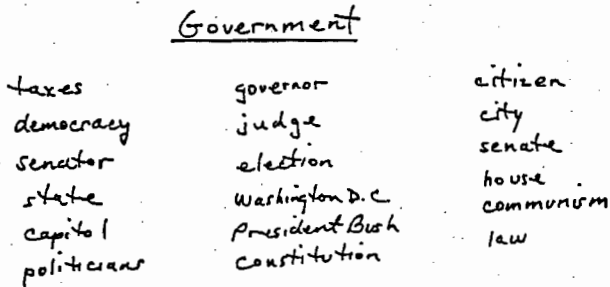 Government
taxes
democracy
senator
state
capitol
politicians
governor
judge
election
Washington D.C
President Bush
constitution
citizen
city
senate
house
communism
law